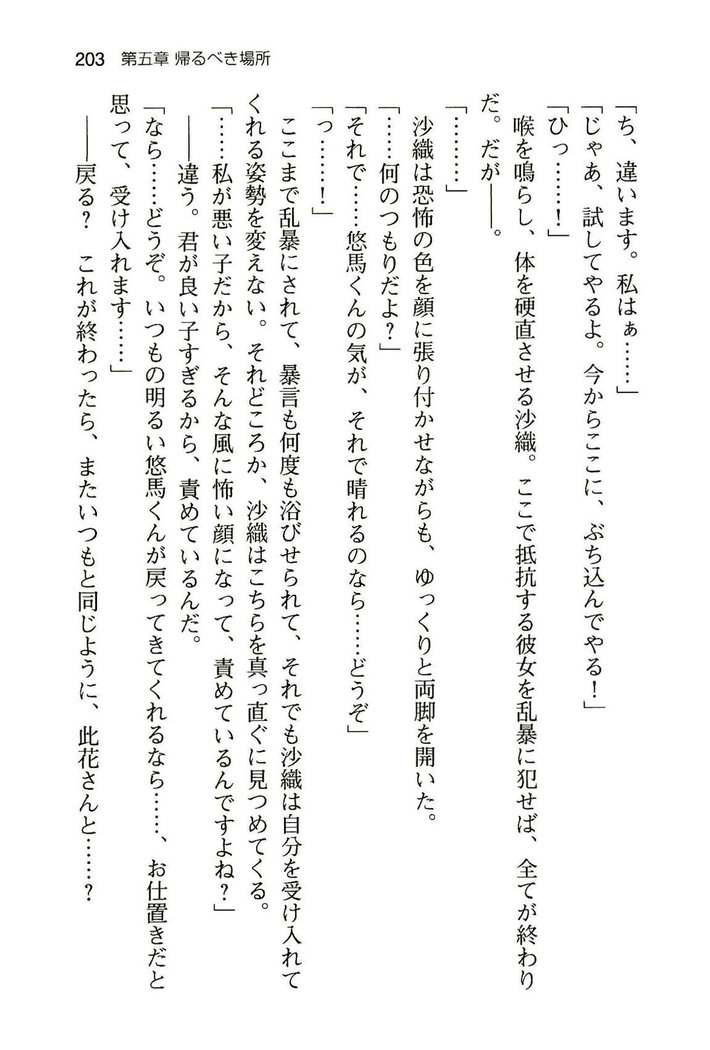 203 第五章 帰るべき場所
「ち、違います。私はぁ……」
「じゃあ、試してやるよ。今からここに、ぶち込んでやる！」
「ひっ……！」
喉を鳴らし、体を硬直させる沙織。ここで抵抗する彼女を乱暴に犯せば、全てが終わり
だ。だが――。
「………」
沙織は恐怖の色を顔に張り付かせながらも、ゆっくりと両脚を開いた。
「……何のつもりだよ？」
「それで……悠馬くんの気が、それで晴れるのなら……どうぞ」
「っ……！」
ここまで乱暴にされて、暴言も何度も浴びせられて、それでも沙織は自分を受け入れて
くれる姿勢を変えない。それどころか、沙織はこちらを真っ直ぐに見つめてくる。
「……私が悪い子だから、そんな風に怖い顔になって、責めているんですよね？」
――違う。君が良い子すぎるから、責めているんだ。
「なら……どうぞ。いつもの明るい悠馬くんが戻ってきてくれるなら……、お仕置きだと
思って、受け入れます……」
――戻る？　これが終わったら、またいつもと同じように、此花さんと……？